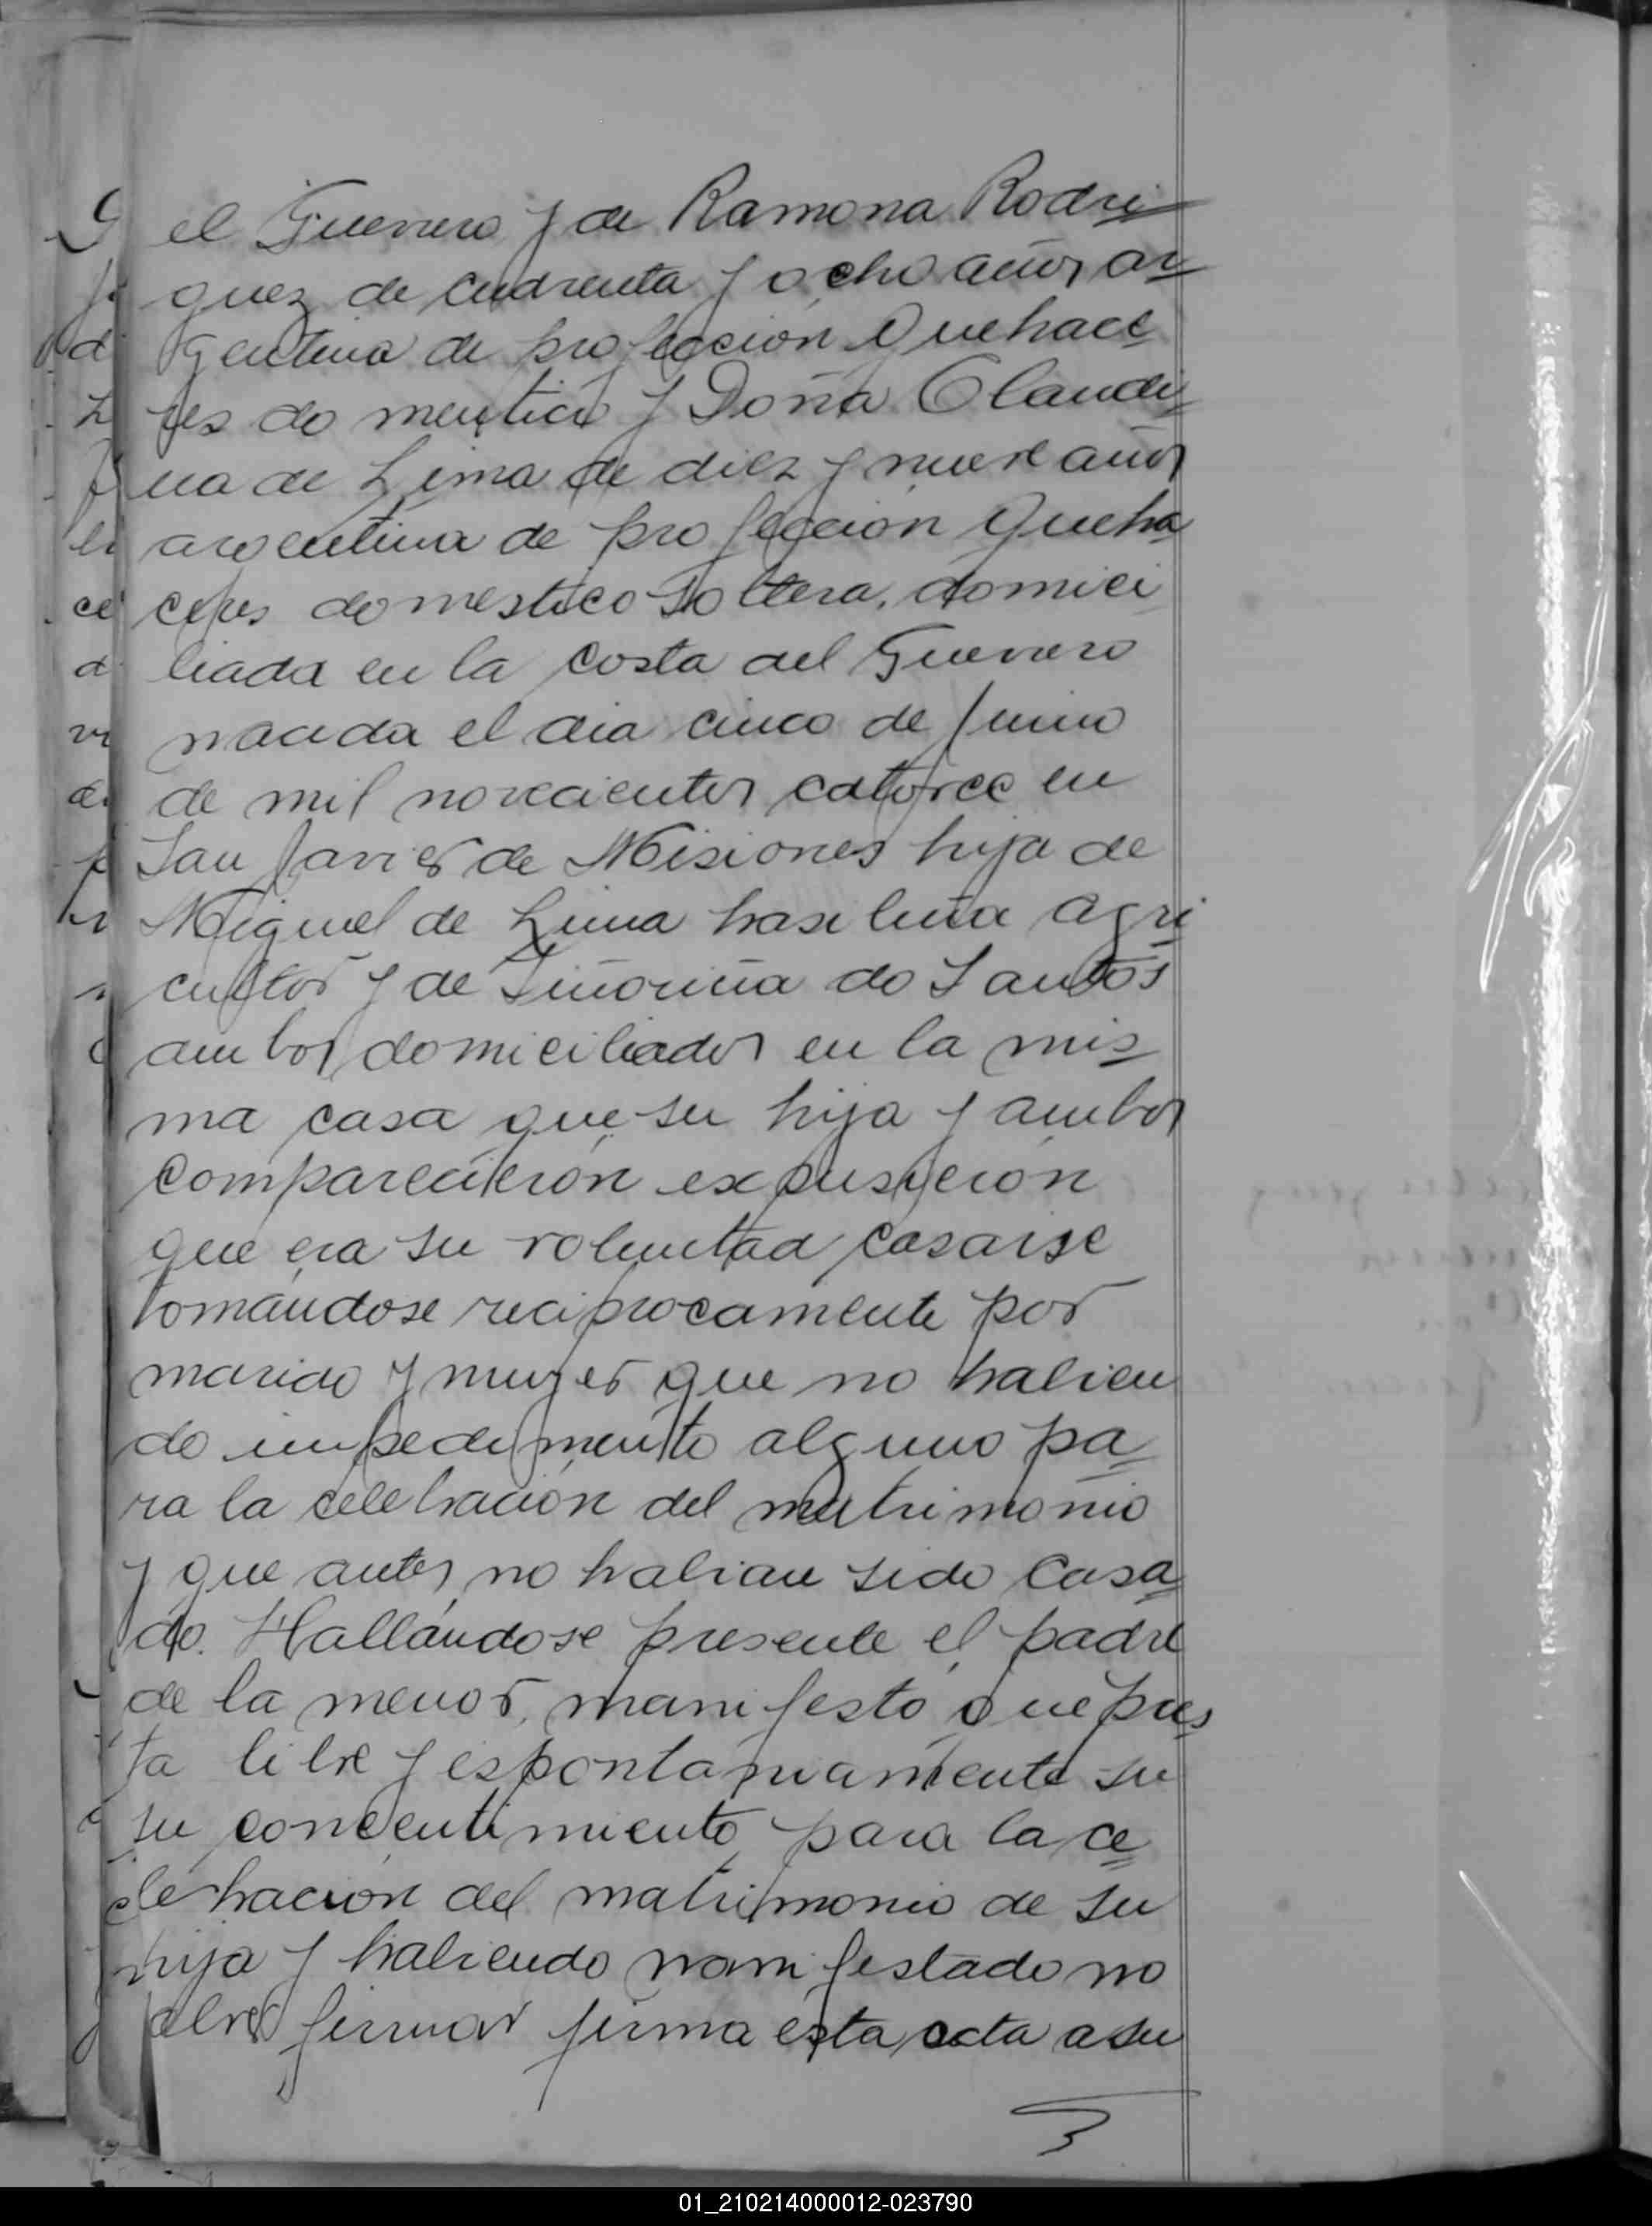 el Guerrero y de Ramona Rodri
guez de cuarenta y ocho años ar
gentina de profeccion Quehace
res domestico y Doña Claudi
na de Lima de diez y nueve años
argentina de profeccion Queha
ceres domestico Soltera, domici
liada en la costa del Guerrero
nacida el dia cinco de Junio
de mil novecientos catorce en
San Javier de Misiones hija de
Miguel de Lima brasileña agri
cultor y de do Santos
ambos domiciliados en la mis
ma casa que su hija y ambos
comparecieron expusieron
que era su voluntad casarse
tomandose reciprocamente por
marido y mujer que no habien
do impedimento alguno pa
ra la celebracion del matrimonio
y que antes no habian sido casa
do. Hallandose presente el padre
de la menor, manifesto que pres
ta libre y espontaneamente su
su concentimiento para la ce
lebracion del matrimonio de su
hija y habiendo manifestado no
firmar firma esta acta a su
01_210214000012-023790